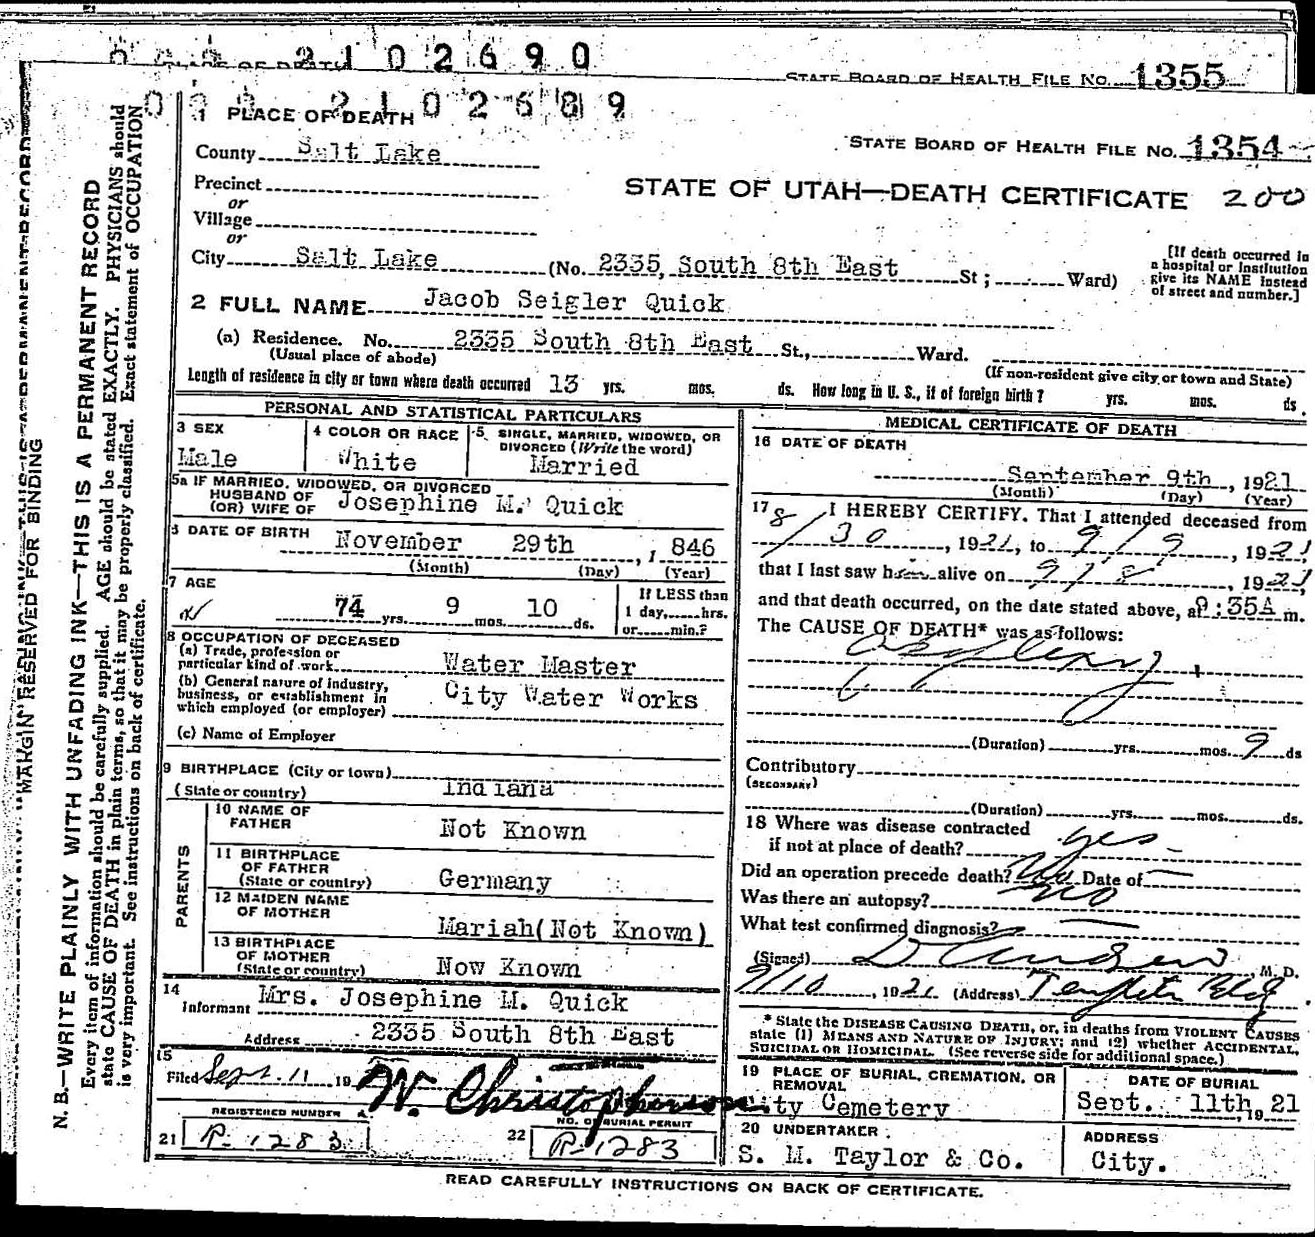 2102690
STATE BOARD OF HEALTH FILE NO. 1355
2102689
1 PLACE OF DEATH
STATE BOARD OF HEALTH FILE NO. 1354
County Salt Lake
Precinct
STATE OF UTAH—DEATH CERTIFICATE 200
or
Village
or
City Salt Lake (No. 2335, South 8th East St; Ward)
[If death occurred in
a hospital or institution
give its NAME instead
of street and number.]
2 FULL NAME Jacob Seigler Quick
(a) Residence. No. 2335 South 8th East St., Ward.
(Usual place of abode)
(If non-resident give city or town and State)
Length of residence in city or town where death occurred 13 yrs. mos. ds. How long in U. S., if of foreign birth? yrs. mos. ds.
PERSONAL AND STATISTICAL PARTICULARS
3 SEX
Male
4 COLOR OR RACE
White
5 SINGLE, MARRIED, WIDOWED, OR
DIVORCED (Write the word)
Married
5a IF MARRIED, WIDOWED, OR DIVORCED
HUSBAND OF
(OR) WIFE OF Josephine M. Quick
6 DATE OF BIRTH November 29th, 1846
(Month) (Day) (Year)
7 AGE
74 yrs. 9 mos. 10 ds.
If LESS than
1 day,.....hrs.
or.....min.?
8 OCCUPATION OF DECEASED
(a) Trade, profession or
particular kind of work Water Master
(b) General nature of industry,
business, or establishment in
which employed (or employer) City Water Works
(c) Name of Employer
9 BIRTHPLACE (City or town)
(State or country) Indiana
PARENTS
10 NAME OF
FATHER Not Known
11 BIRTHPLACE
OF FATHER
(State or country) Germany
12 MAIDEN NAME
OF MOTHER Mariah(Not Known)
13 BIRTHPLACE
OF MOTHER
(State or country) Now Known
14
Informant Mrs. Josephine M. Quick
Address 2335 South 8th East
15
Filed Sept. 11 19 W. Christopherson
REGISTERED NUMBER
21 R-1283
NO. OF BURIAL PERMIT
22 R-1283
MEDICAL CERTIFICATE OF DEATH
16 DATE OF DEATH
September 9th, 1921
(Month) (Day) (Year)
17 I HEREBY CERTIFY. That I attended deceased from
8/30, 1921, to 9/9, 1921
that I last saw him alive on 9/8, 1921,
and that death occurred, on the date stated above, at 9:35A m.
The CAUSE OF DEATH* was as follows:
Apoplexy
(Duration) yrs. mos. 9 ds
Contributory
(SECONDARY)
(Duration) yrs. mos. ds.
18 Where was disease contracted
if not at place of death? yes
Did an operation precede death? No Date of
Was there an autopsy? No
What test confirmed diagnosis?
(Signed) M. D.
9/10, 1921 (Address) Templeton Bldg.
* State the DISEASE CAUSING DEATH, or, in deaths from VIOLENT CAUSES
state (1) MEANS AND NATURE OF INJURY; and (2) whether ACCIDENTAL,
SUICIDAL OR HOMICIDAL. (See reverse side for additional space.)
19 PLACE OF BURIAL, CREMATION, OR
REMOVAL
City Cemetery
DATE OF BURIAL
Sept. 11th, 1921
20 UNDERTAKER
S. M. Taylor & Co.
ADDRESS
City.
READ CAREFULLY INSTRUCTIONS ON BACK OF CERTIFICATE.
MARGIN RESERVED FOR BINDING
N. B.—WRITE PLAINLY WITH UNFADING INK—THIS IS A PERMANENT RECORD
Every item of information should be carefully supplied. AGE should be stated EXACTLY. PHYSICIANS should
state CAUSE OF DEATH in plain terms, so that it may be properly classified. Exact statement of OCCUPATION
is very important. See instructions on back of certificate.